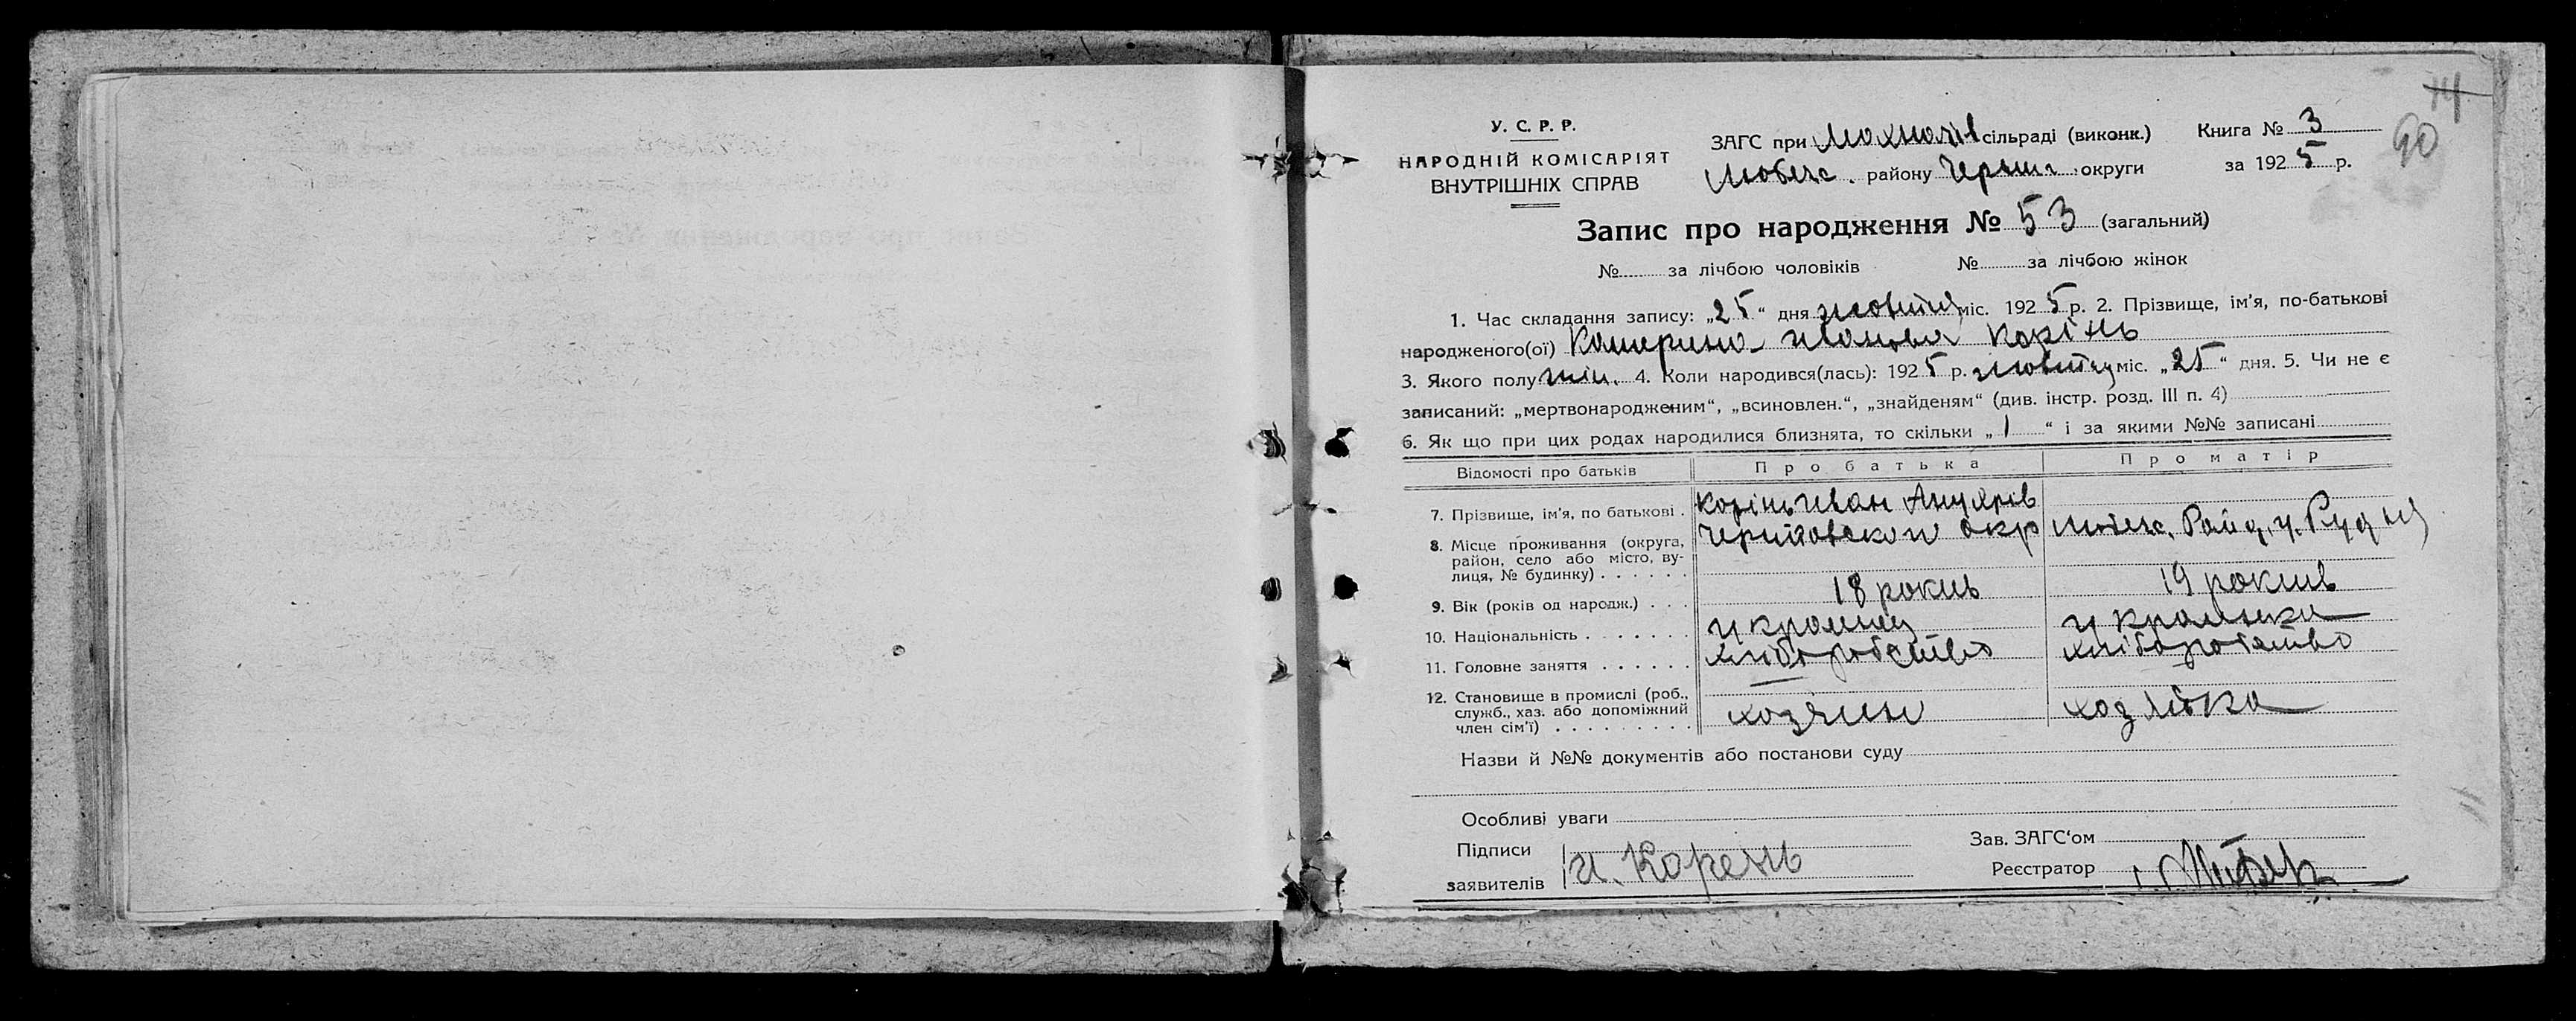 14
90
У. С. Р. Р.
НАРОДНІЙ КОМІСАРІЯТ
ВНУТРІШНІХ СПРАВ
ЗАГС при Мохначів сільраді (виконк.) Книга № 3
Любечс. району Черниг. округи за 1925 р.
Запис про народження № 53 (загальний)
№ за лічбою чоловіків № за лічбою жінок
1. Час складання запису: „25“ дня жовтня міс. 1925 р. 2. Прізвище, ім'я, по-батькові
народженого(ої) Катерина Иванова Корінь
3. Якого полу жін. 4. Коли народився(лась): 1925 р. жовтня міс. „25“ дня. 5. Чи не є
записаний: „мертвонародженим“, „всиновлен.“, „знайденям“ (див. інстр. розд. III п. 4)
6. Як що при цих родах народилися близнята, то скільки „1“ і за якими №№ записані
Відомості про батьків Про батька Про матір
7. Прізвище, ім'я, по батькові . Корінь Иван
8. Місце проживання (округа, район, село або місто, вулиця, № будинку) . . . . . . Окр Любечс. Рудня
9. Вік (років од народж.) . . . 18 рокив 19 рокив
10. Національність . . . . . . . украинец украинка
11. Головне заняття . . . . . . хлiборобство хліборобство
12. Становище в промислі (роб., служб., хаз. або допоміжний член сім'ї) . . . . . . . . . хозяин хозяйка
Назви й №№ документів або постанови суду
Особливі уваги
Підписи
заявителів И. Корень
Зав. ЗАГС‘ом
Реєстратор